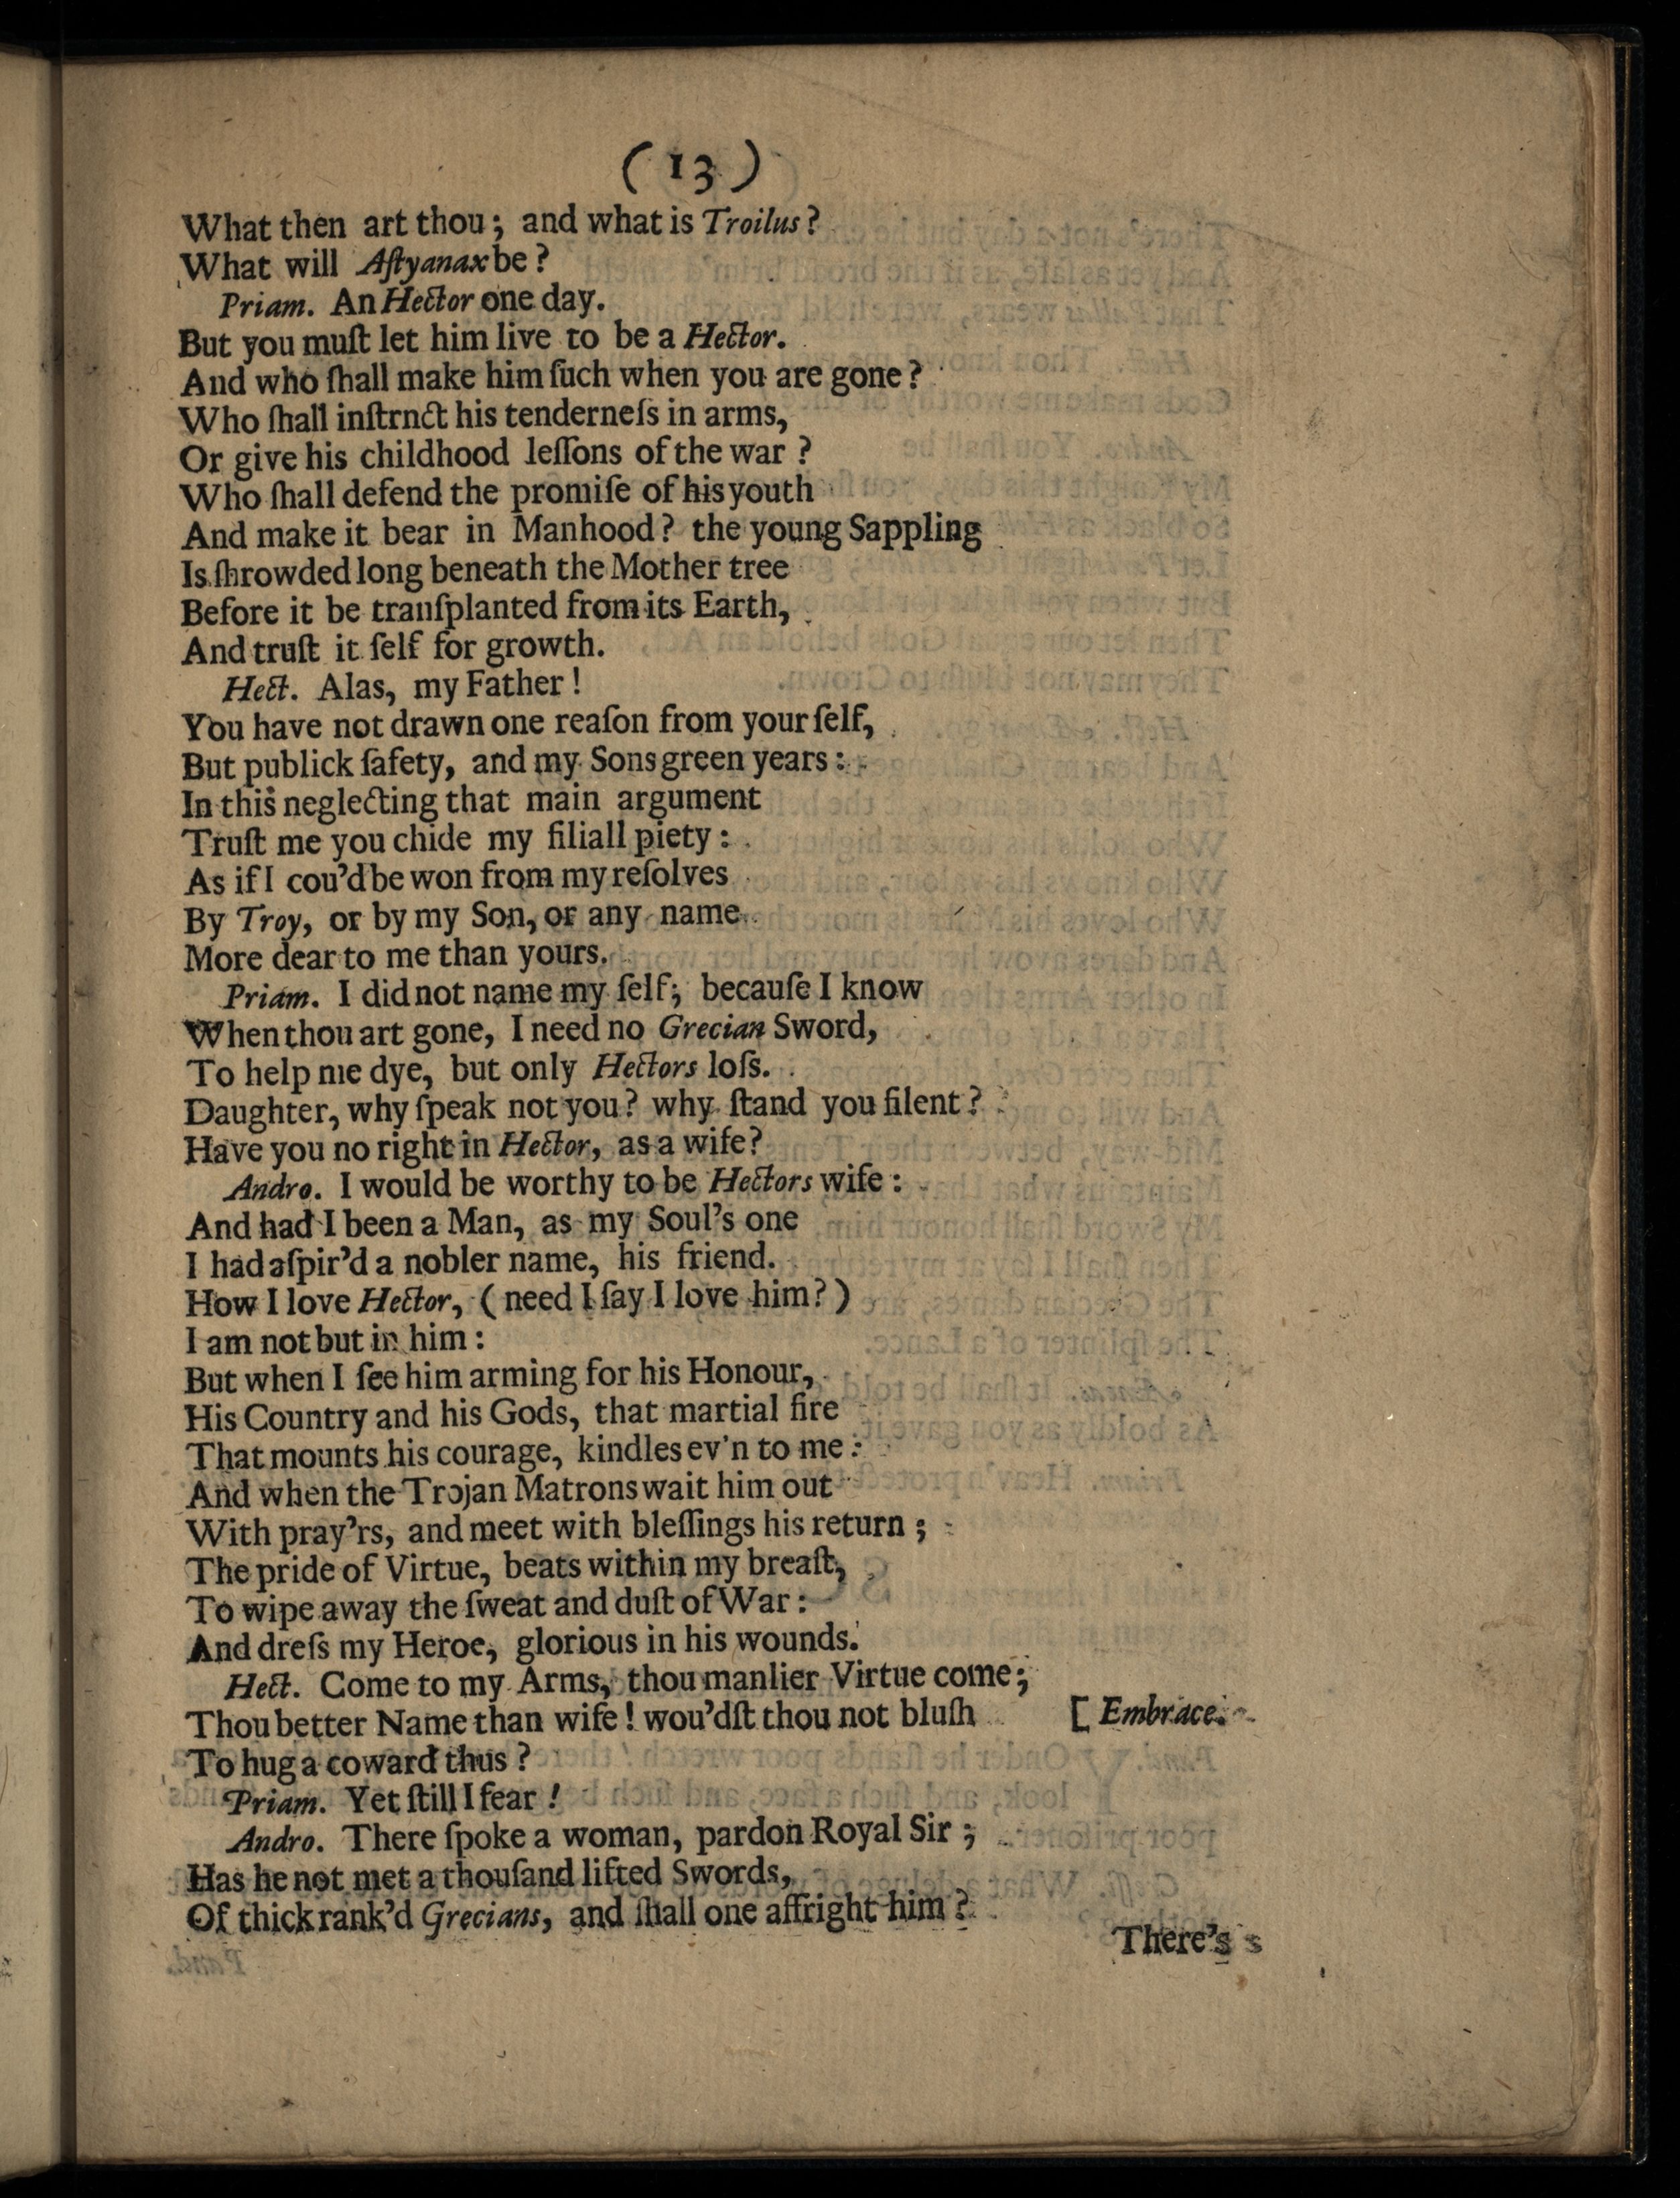 ( 13 )
What then art thou; and what is Troilus?
What will Aſtyanax be?
Priam. An Hector one day.
But you muſt let him live to be a Hector.
And who ſhall make him ſuch when you are gone?
Who ſhall inſtrnct his tenderneſs in arms,
Or give his childhood leſſons of the war?
Who ſhall defend the promiſe of his youth
And make it bear in Manhood? the young Sappling
Is ſhrowded long beneath the Mother tree
Before it be tranſplanted from its Earth,
And truſt it ſelf for growth.
Hect. Alas, my Father!
You have not drawn one reaſon from your ſelf,
But publick ſafety, and my Sons green years:
In this neglecting that main argument
Truſt me you chide my filiall piety:
As if I cou'd be won from my reſolves
By Troy, or by my Son, or any name
More dear to me than yours.
Priam. I did not name my ſelf; becauſe I know
When thou art gone, I need no Grecian Sword,
To help me dye, but only Hectors loſs.
Daughter, why ſpeak not you? why ſtand you ſilent?
Have you no right in Hector, as a wife?
Andro. I would be worthy to be Hectors wife:
And had I been a Man, as my Soul's one
I had aſpir'd a nobler name, his friend.
How I love Hector, (need I ſay I love him?)
I am not but in him:
But when I ſee him arming for his Honour,
His Country and his Gods, that martial fire
That mounts his courage, kindles ev'n to me:
And when the Trojan Matrons wait him out
With pray'rs, and meet with bleſſings his return;
The pride of Virtue, beats within my breaſt,
To wipe away the ſweat and duſt of War:
And dreſs my Heroe, glorious in his wounds.
Hect. Come to my Arms, thou manlier Virtue come;
Thou better Name than wife! wou'dſt thou not bluſh [Embrace.
To hug a coward thus?
Priam. Yet ſtill I fear!
Andro. There ſpoke a woman, pardon Royal Sir;
Has he not met a thouſand lifted Swords,
Of thick rank'd Grecians, and ſhall one affright him?
There's